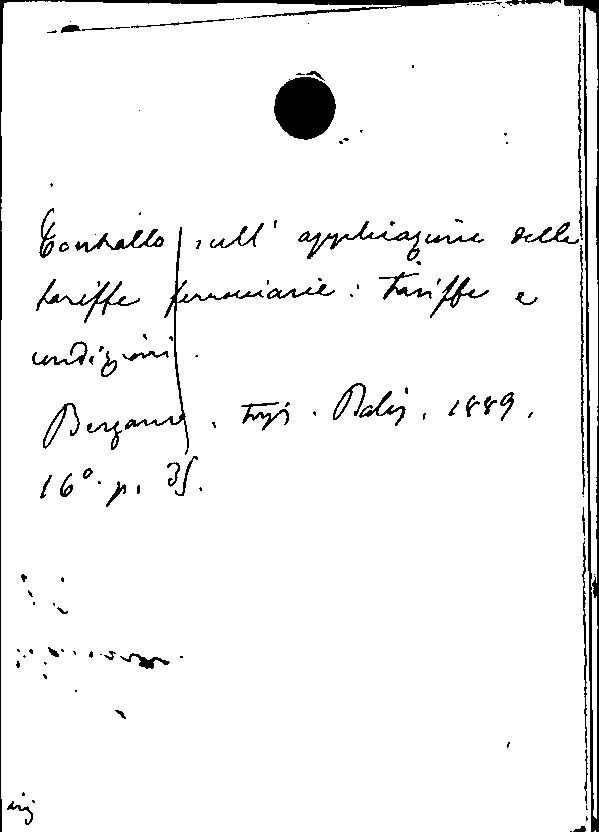 Controllo sull' applicazione delle
tariffe ferroviarie : Tariffe e
condizioni.
Bergamo, tip. Bolis, 1889,
16º. p. 35.